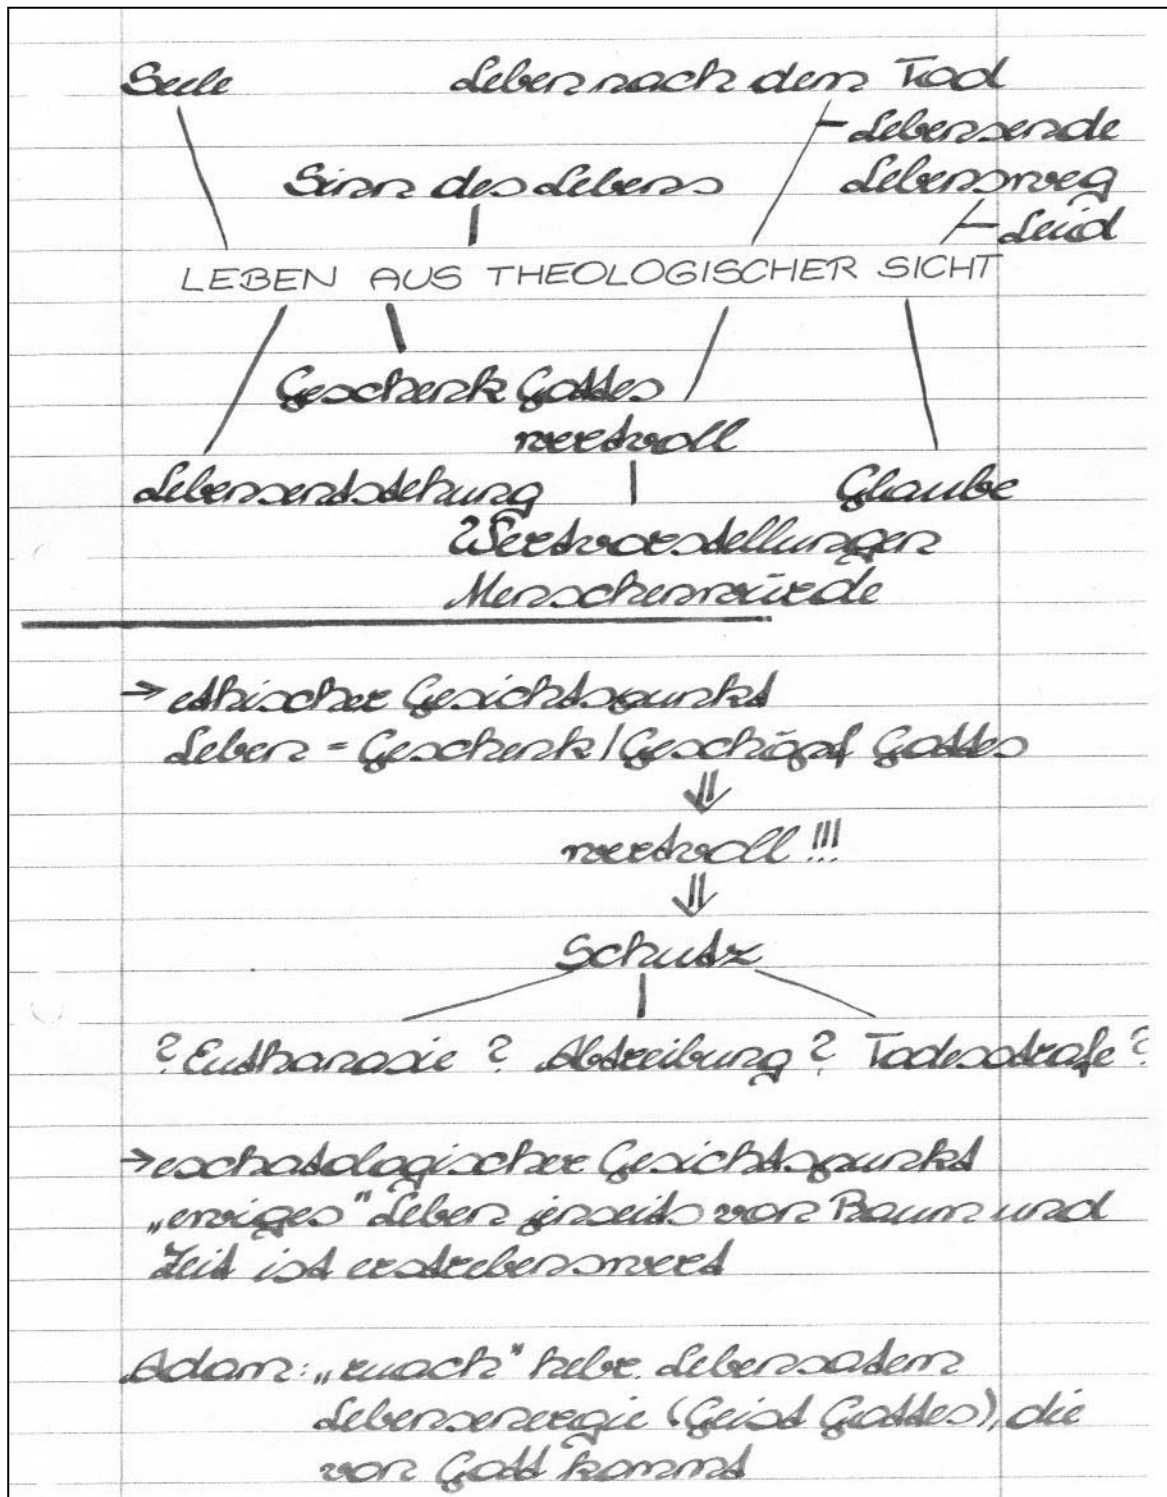 Seele Leben nach dem Tod
Lebensende
Sinn des Lebens Lebensweg
Leid
LEBEN AUS THEOLOGISCHER SICHT
Geschenk Gottes
wertvoll
Lebensentstehung Glaube
Wertvorstellungen
Menschenwürde
→ ethischer Gesichtspunkt
Leben = Geschenk / Geschöpf Gottes
⇓
wertvoll !!!
⇓
Schutz
? Euthanasie ? Abtreibung ? Todesstrafe ?
→ eschatologischer Gesichtspunkt
„ewiges" Leben jenseits von Raum und
Zeit ist erstrebenswert
Adam: „ruach" hebr. Lebensatem
Lebensenergie (Geist Gottes), die
von Gott kommt